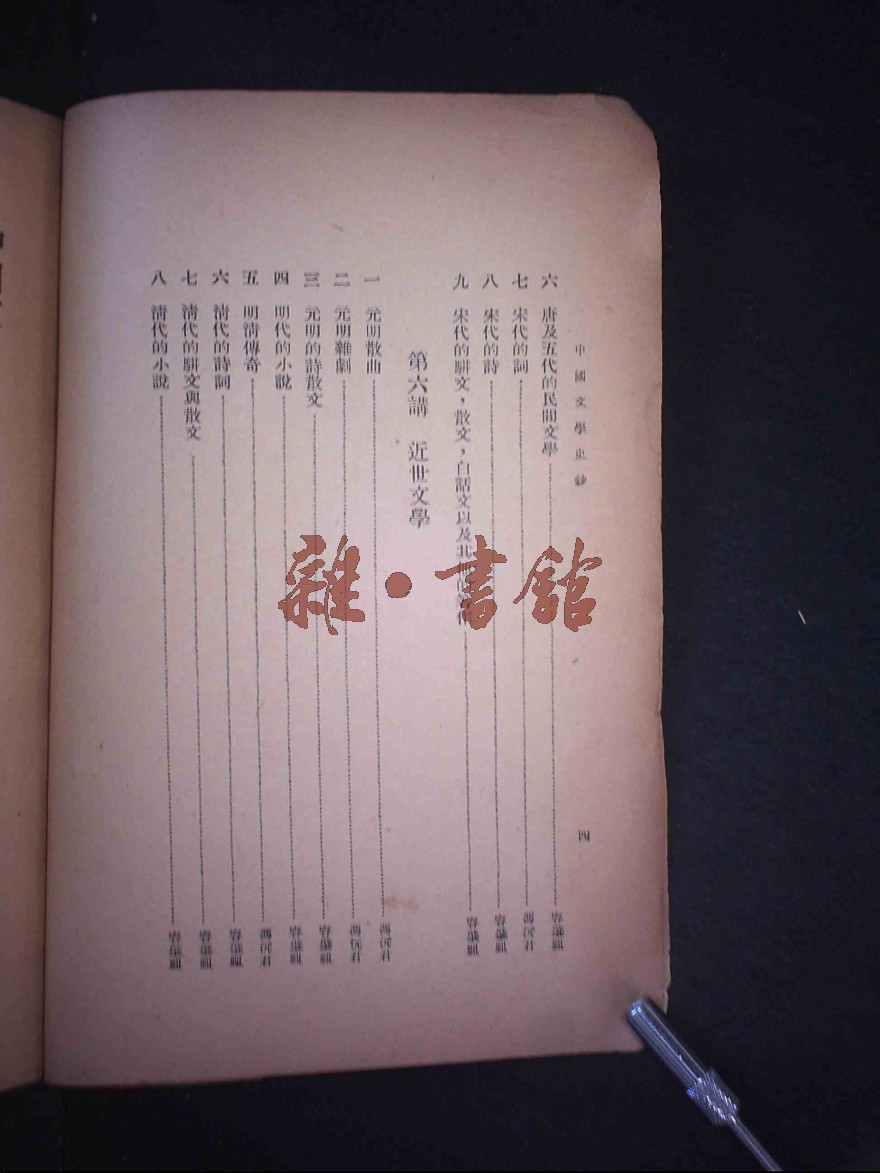 中國文學史鈔
四
六 唐及五代的民間文學 容肇祖
七 宋代的詞 馮沅君
八 宋代的詩 容肇祖
九 宋代的駢文，散文，白話文以及其 容肇祖
第六講 近世文學
一 元明散曲 馮沅君
二 元明雜劇 馮沅君
三 元明的詩散文 容肇祖
四 明代的小說 容肇祖
五 明清傳奇 馮沅君
六 清代的詩詞 容肇祖
七 清代的駢文與散文 容肇祖
八 清代的小說 容肇祖
雜·書館